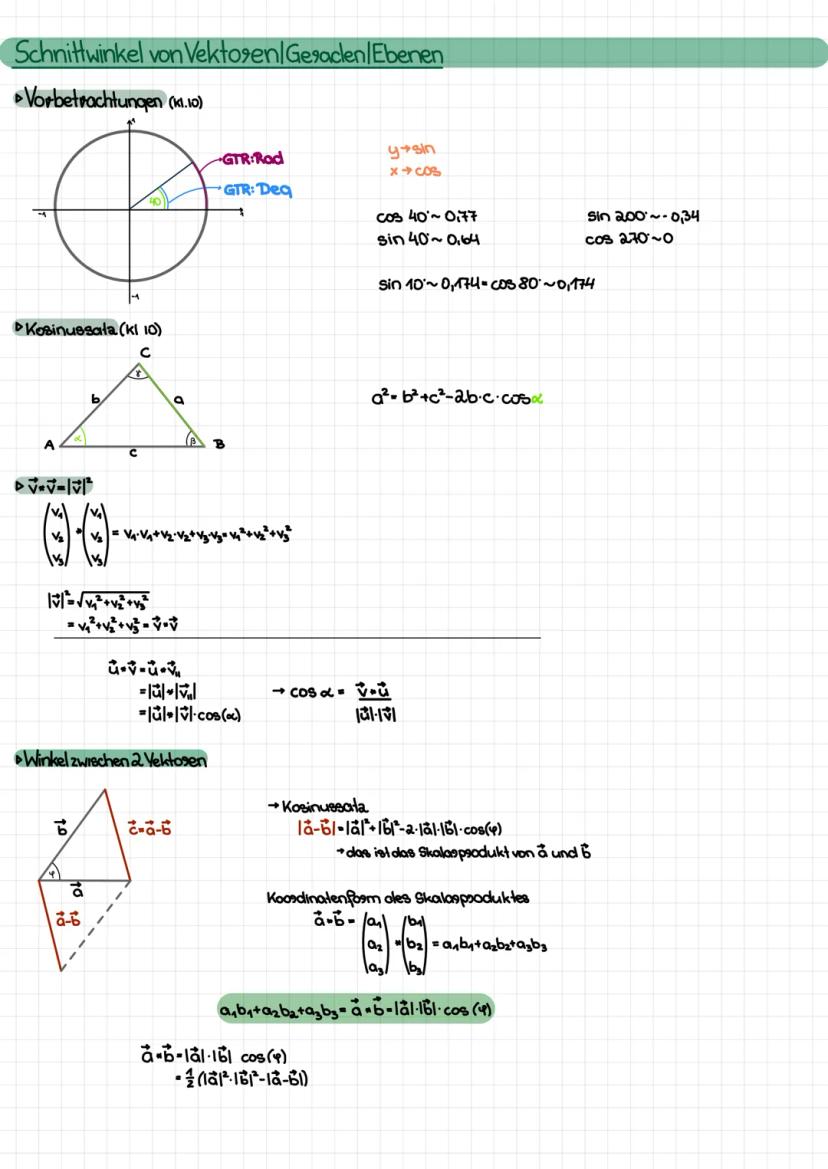 Schnittwinkel von Vektoren|Geraden|Ebenen
▷ Vorbetrachtungen (kl.10)
1
GTR: Rad
GTR: Deg
40
-1
1
-1
y→sin
x→cos
cos 40°~ 0,77
sin 200°~ -0,34
sin 40°~ 0,64
cos 270°~0
sin 10°~ 0,174 = cos 80°~ 0,174
▷ Kosinussatz (kl 10)
C
γ
b
a
a² = b²+c²-2b·c·cosα
A
α
β
B
c
▷ v⃗∗v⃗=|v⃗|²
(v₁ v₂ v₃) ∗ (v₁ v₂ v₃) = v₁·v₁+v₂·v₂+v₃·v₃=v₁²+v₂²+v₃²
|v⃗|²=√v₁²+v₂²+v₃²
= v₁²+v₂²+v₃² = v⃗∗v⃗
u⃗∗v⃗=u⃗∗v⃗ᵤ
=|u⃗|∗|v⃗ᵤ|
→ cos α = v⃗∗u⃗ / |u⃗|·|v⃗|
=|u⃗|∗|v⃗|·cos(α)
▷ Winkel zwischen 2 Vektoren
b⃗
c⃗=a⃗-b⃗
φ
a⃗
a⃗-b⃗
→ Kosinussatz
|a⃗-b⃗|=|a⃗|²+|b⃗|²-2·|a⃗|·|b⃗|·cos(φ)
→ das ist das Skalarprodukt von a⃗ und b⃗
Koordinatenform des Skalarproduktes
a⃗∗b⃗ = (a₁ a₂ a₃) ∗ (b₁ b₂ b₃) = a₁b₁+a₂b₂+a₃b₃
a₁b₁+a₂b₂+a₃b₃= a⃗∗b⃗=|a⃗|·|b⃗|·cos (φ)
a⃗∗b⃗=|a⃗|·|b⃗| cos(φ)
=½(|a⃗|²·|b⃗|²-|a⃗-b⃗|)